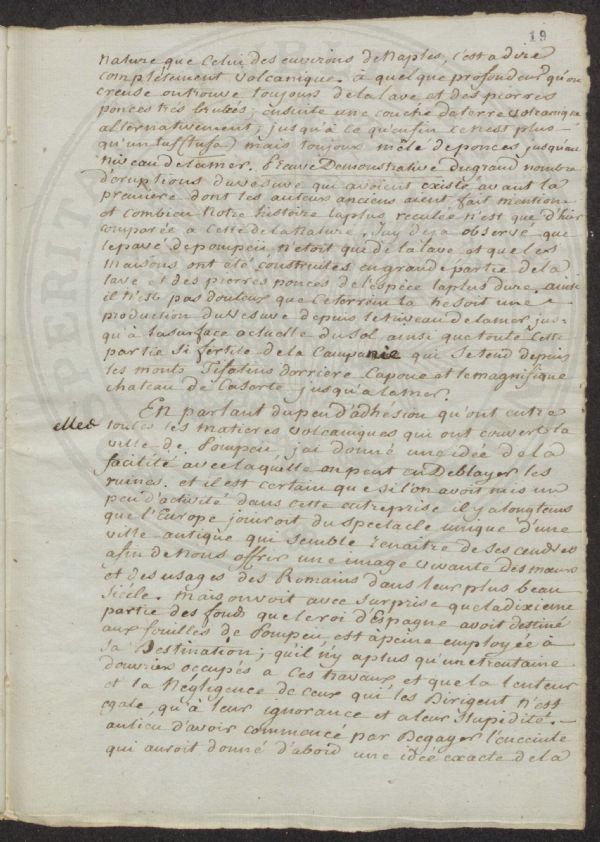 19
nature que Celui des environs de Naples, c'est a dire
complétement volcanique. à quelque profondeur qu'on
creuse on trouve toujours de la lave et des pierres
ponces très brulées; ensuite une couche de terre volcanique
alternativement, jusqu'à ce qu'enfin ce n'est plus
qu'un tuf (tufa) mais toujours mêlé de ponces jusqu'au
niveau de la mer. Preuve Demonstrative du grand nombre
d'eruptions du vesuve qui avoient existé avant la
premiere dont les auteurs anciens aient fait mention
et combien notre histoire la plus reculée n'est que d'hier
comparée à Celle de la Nature. J'ay deja observé que
le pavé de pompeii n'étoit que de la lave et que les
maisons ont été construites en grande partie de la
lave et des pierres ponces de l'espèce la plus dure. ainsi
il n'est pas douteux que Ce terrein la ne soit une
production du vesuve depuis le Niveau de la mer jus-
qu'à la surface actuelle du sol ainsi que toute Cette
partie si fertile de la Campanie qui S'etend depuis
les monts Tifatins derriere Capoue et le magnifique
chateau de Caserte jusqu'a la mer.
En parlant du peu d'adhesion qu'ont entre
elles
toutes les matieres volcaniques qui ont couvert la
ville de Pompeii, j'ai donné une idée de la
facilité avec laquelle on peut en Deblayer les
ruines. et il est certain que si l'on avoit mis un
peu d'activité dans cette entreprise il y a longtems
que l'Europe jouiroit du spectacle unique d'une
ville antique qui semble renaitre de ses cendres
afin de Nous offrir une image vivante des mœurs
et des usages des Romains dans leur plus beau
Siécle. mais on voit avec surprise que la dixieme
partie des fonds que le roi d'Espagne avoit destiné
aux fouilles de Pompeii est a peine employée à
sa Destination; qu'il n'y a plus qu'une trentaine
d'ouvriers occupés a ces travaux et que la lenteur
et la Négligence de ceux qui les Dirigent n'est
egale qu'à leur ignorance et a leur stupidité. —
au lieu d'avoir commencé par Degager l'enceinte
qui auroit donné d'abord une idée exacte de la